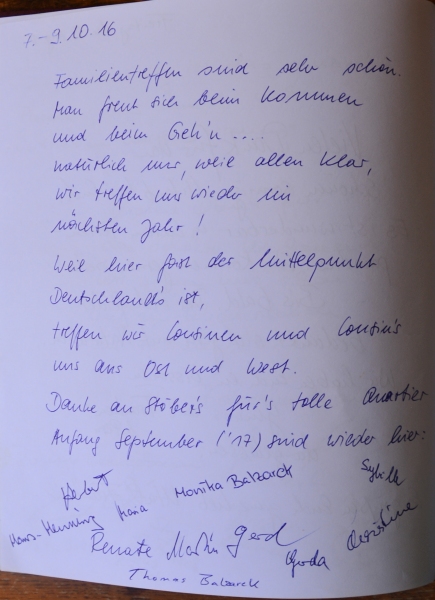 7.-9.10.16
Familientreffen sind sehr schön.
Man freut sich beim Kommen
und beim Geh'n....
natürlich nur, weil allen klar,
wir treffen uns wieder im
nächsten Jahr!
Weil hier fast der Mittelpunkt
Deutschland's ist,
treffen wir Cousinen und Cousin's
uns aus Ost und West.
Danke an Stöber's für's tolle Quartier
Anfang September ('17) sind wieder hier:
Monika Balzarck Sybille
Hans-Henning Maria
Renate Martin Gerd Gerda Christine
Thomas Balzarck